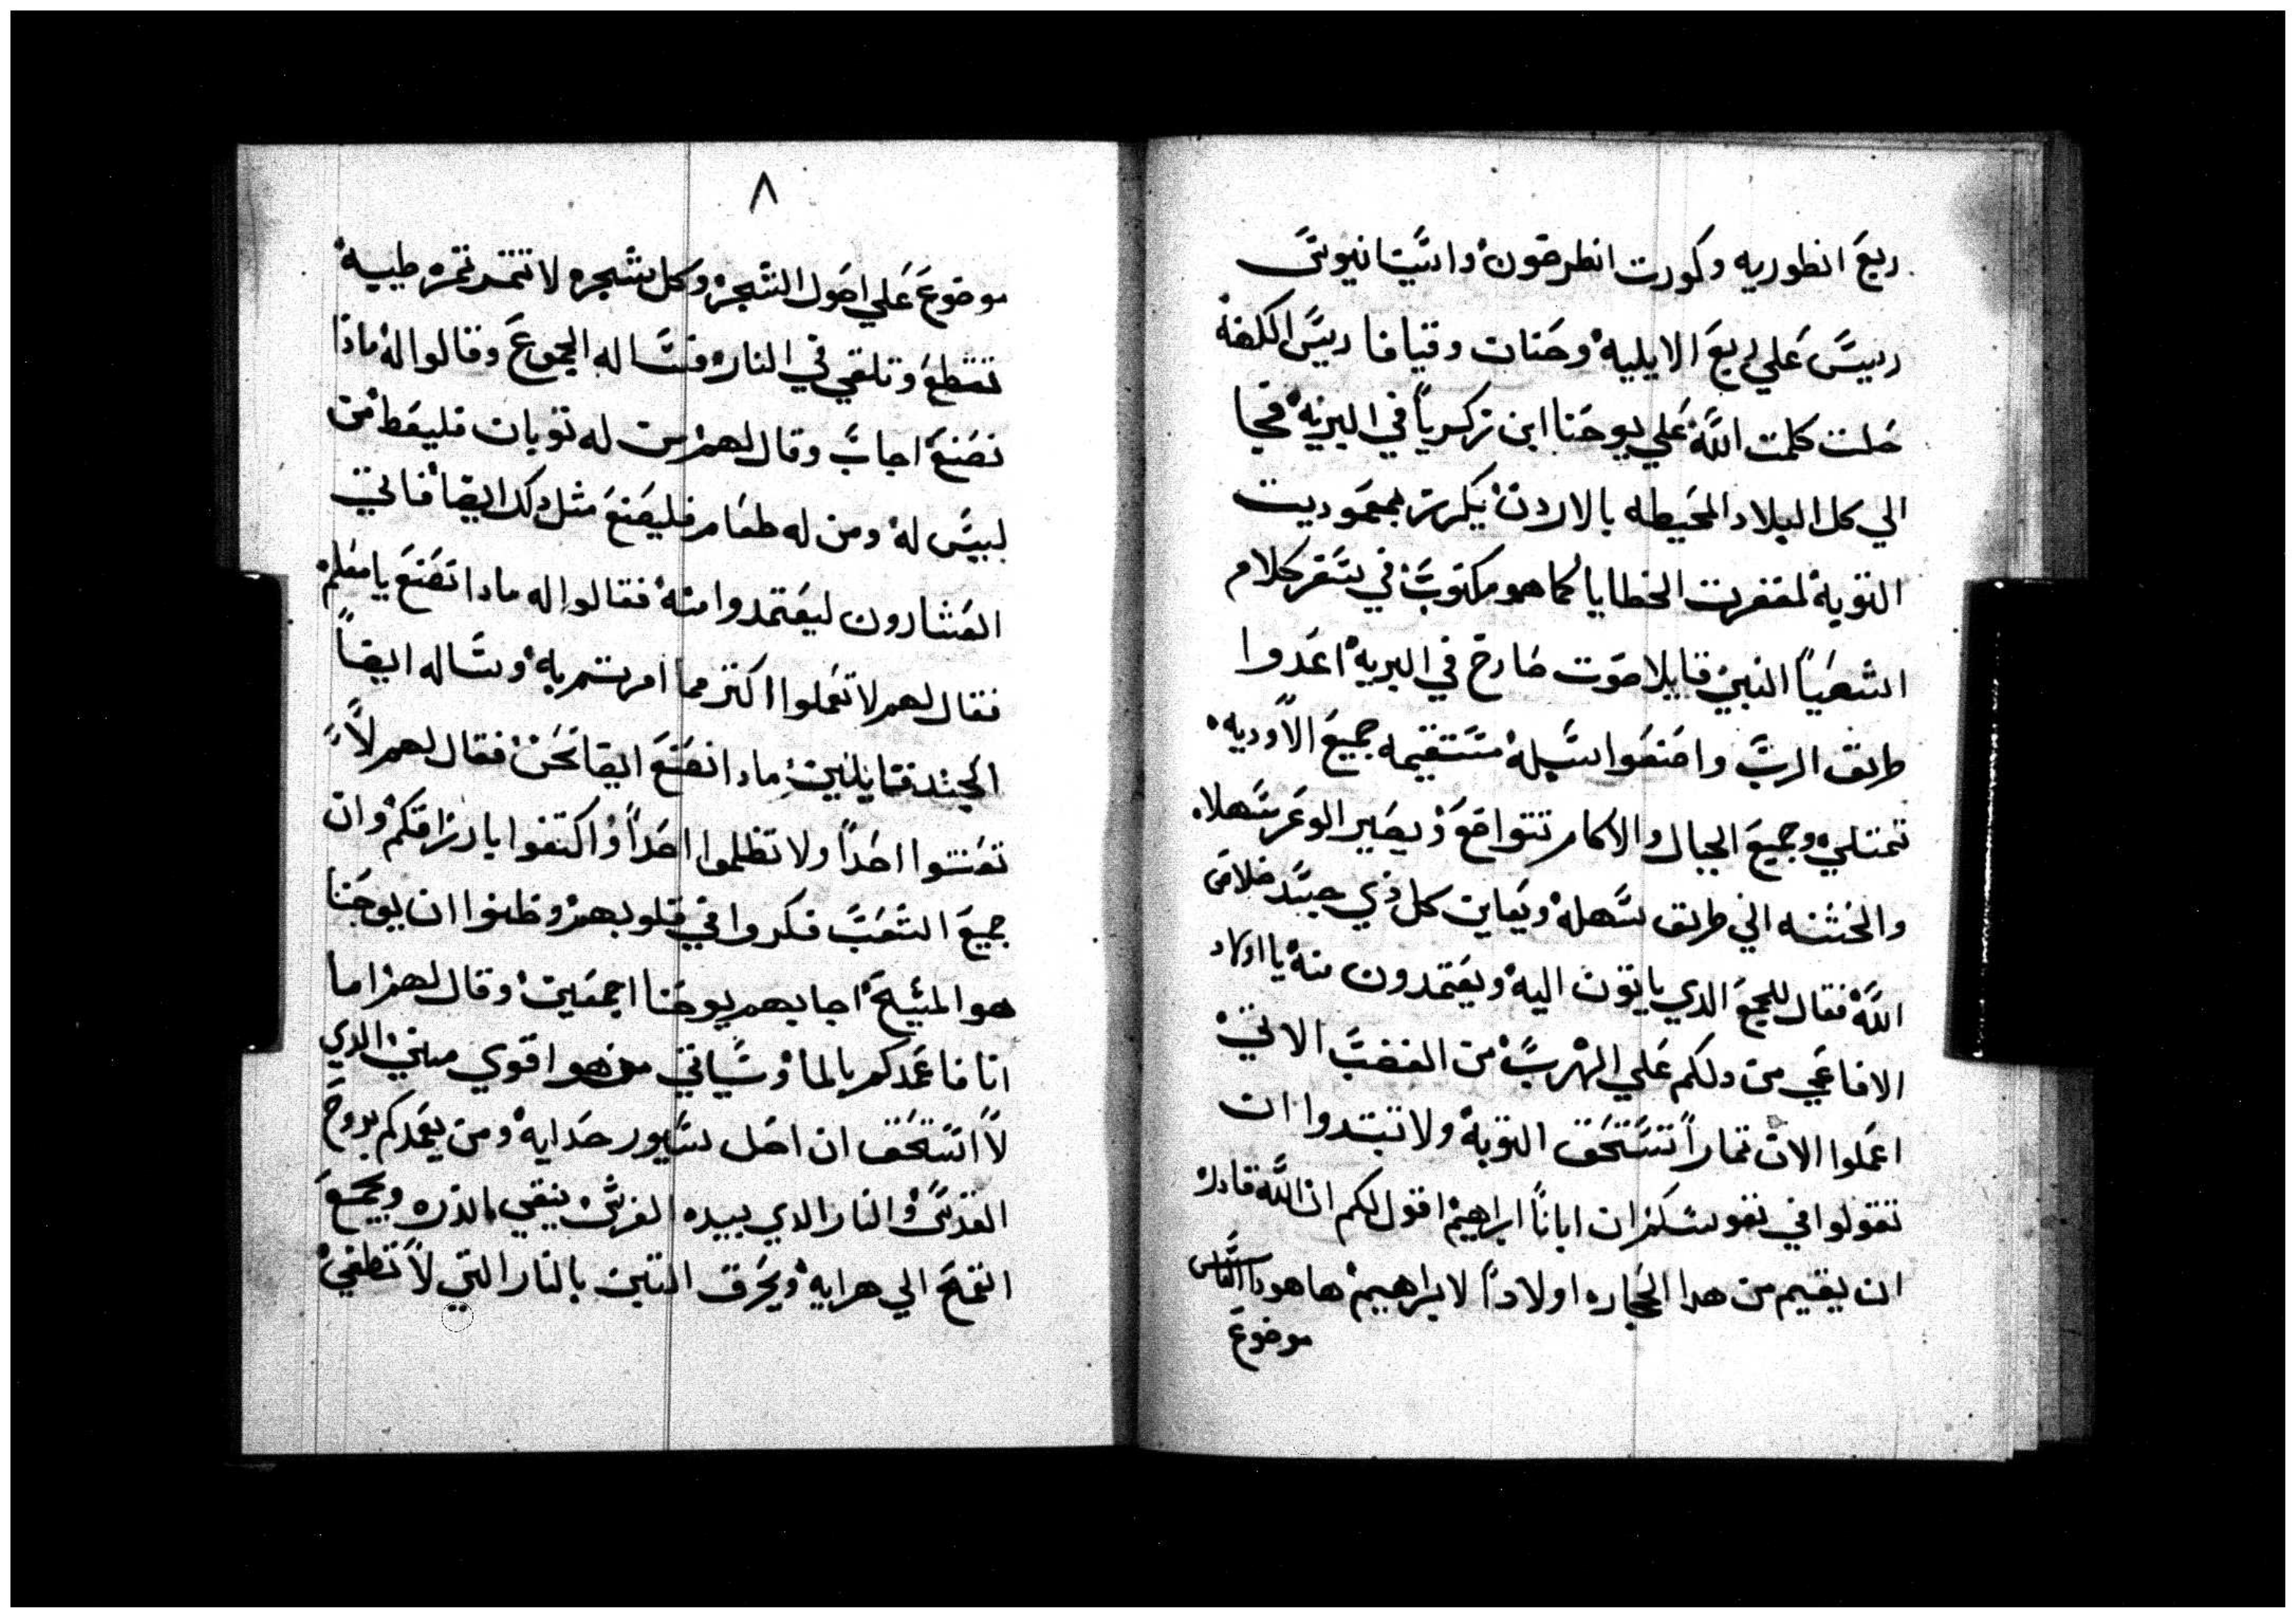 ربع انطوريه وكورت انطرخون وانسانيوس
رييس علي ربع الايليه وحنان وقيافا رييس الكهنه
حلت كلمت الله علي يوحنا ابن زكريا في البريه فجا
الي كل البلاد المحيطه بالاردن يكرز بمعموديت
التوبه لمغفرت الخطايا كما هو مكتوب في سفر كلام
اشعيا النبي قايلا صوت صارخ في البريه اعدوا
طريق الرب واصنعوا سبله مستقيمه جميع الاوديه
تمتلي وجميع الجبال والاكام تتواضع ويصير الوعر سهلا
والخشنه الي طريق سهله ويعاين كل ذي جسد خلاص
الله فقال للجمع الدي ياتون اليه ويعتمدون منه يا اولاد
الافاعي من دلكم علي الهرب من الغضب الاتي
اعملوا الان تمارا تستحق التوبه ولا تبتدوا ان
تقولوا في نفوسكم ان ابانا ابراهيم اقول لكم ان الله قادر
ان يقيم من هدا الحجاره اولادا لابراهيم ها هودا الفاس
موضوع
٨
موضوع علي اصول الشجره وكل شجره لا تتمر تمره طيبه
تقطع وتلقي في النار فساله الجموع وقالوا له مادا
نصنع اجاب وقال لهم من له توبان فليعط من
ليس له ومن له طعام فليصنع متل دلك ايضا فاتي
العشارون ليعتمدوا منه فقالوا له مادا نصنع يا معلم
فقال لهم لا تعملوا اكتر مما امرتم به وساله ايضا
الجند قايلين مادا نصنع ايضا نحن فقال لهم لا
تعنتوا احدا ولا تظلموا احدا واكتفوا بارزاقكم وان
جميع الشعب فكروا في قلوبهم وظنوا ان يوحنا
هو المسيح اجابهم يوحنا اجمعين وقال لهم اما
انا فاعمدكم بالما وسياتي من هو اقوي مني الدي
لا استحق ان احل سيور حدايه ومن يعمدكم بروح
القدس والنار الدي بيده الفرش ينقي الدره ويجمع
القمح الي هرايه ويحرق التبن بالنار التي لا تطفي